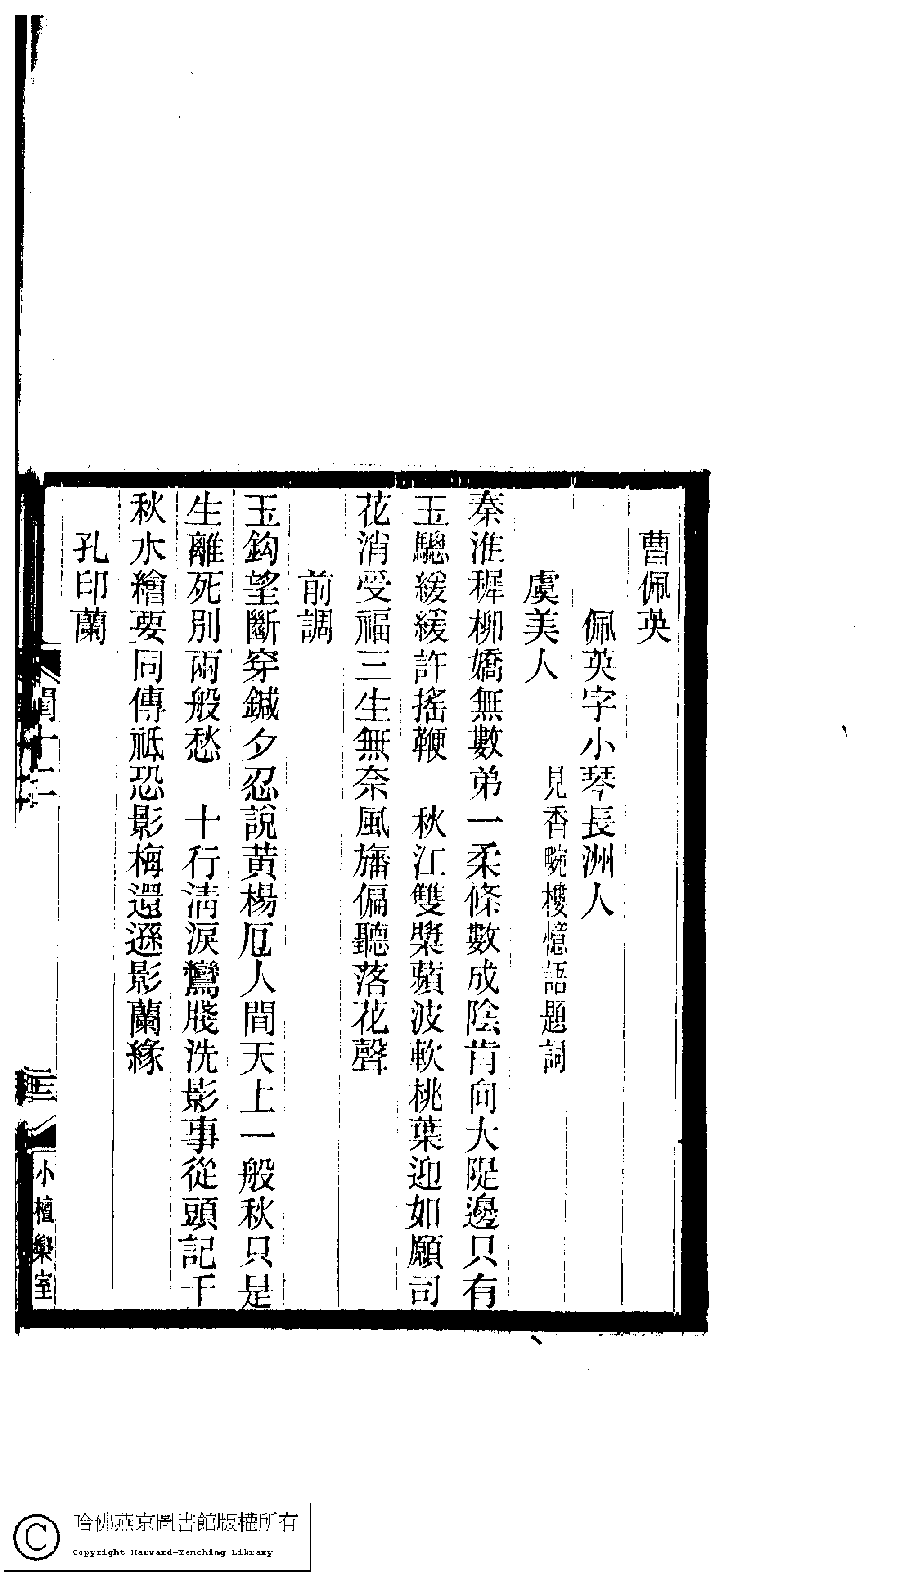 曹佩英
佩英字小琴長洲人
虞美人　見香畹樓憶語題詞
秦淮穉柳嬌無數弟一柔條數成陰肯向大隄邊只有
玉驄緩緩許搖鞭　秋江雙槳蘋波軟桃葉迎如願司
花消受福三生無奈風旛偏聽落花聲
前調
玉鈎望斷穿鍼夕忍說黃楊厄人間天上一般秋只是
生離死別兩般愁　十行淸淚鸞牋洗影事從頭記千
秋水繪要同傳祗恐影梅還遜影蘭緣
孔印蘭
閨十二
三
小檀欒室
哈佛燕京圖書館版權所有
Copyright Harvard-Yenching Library